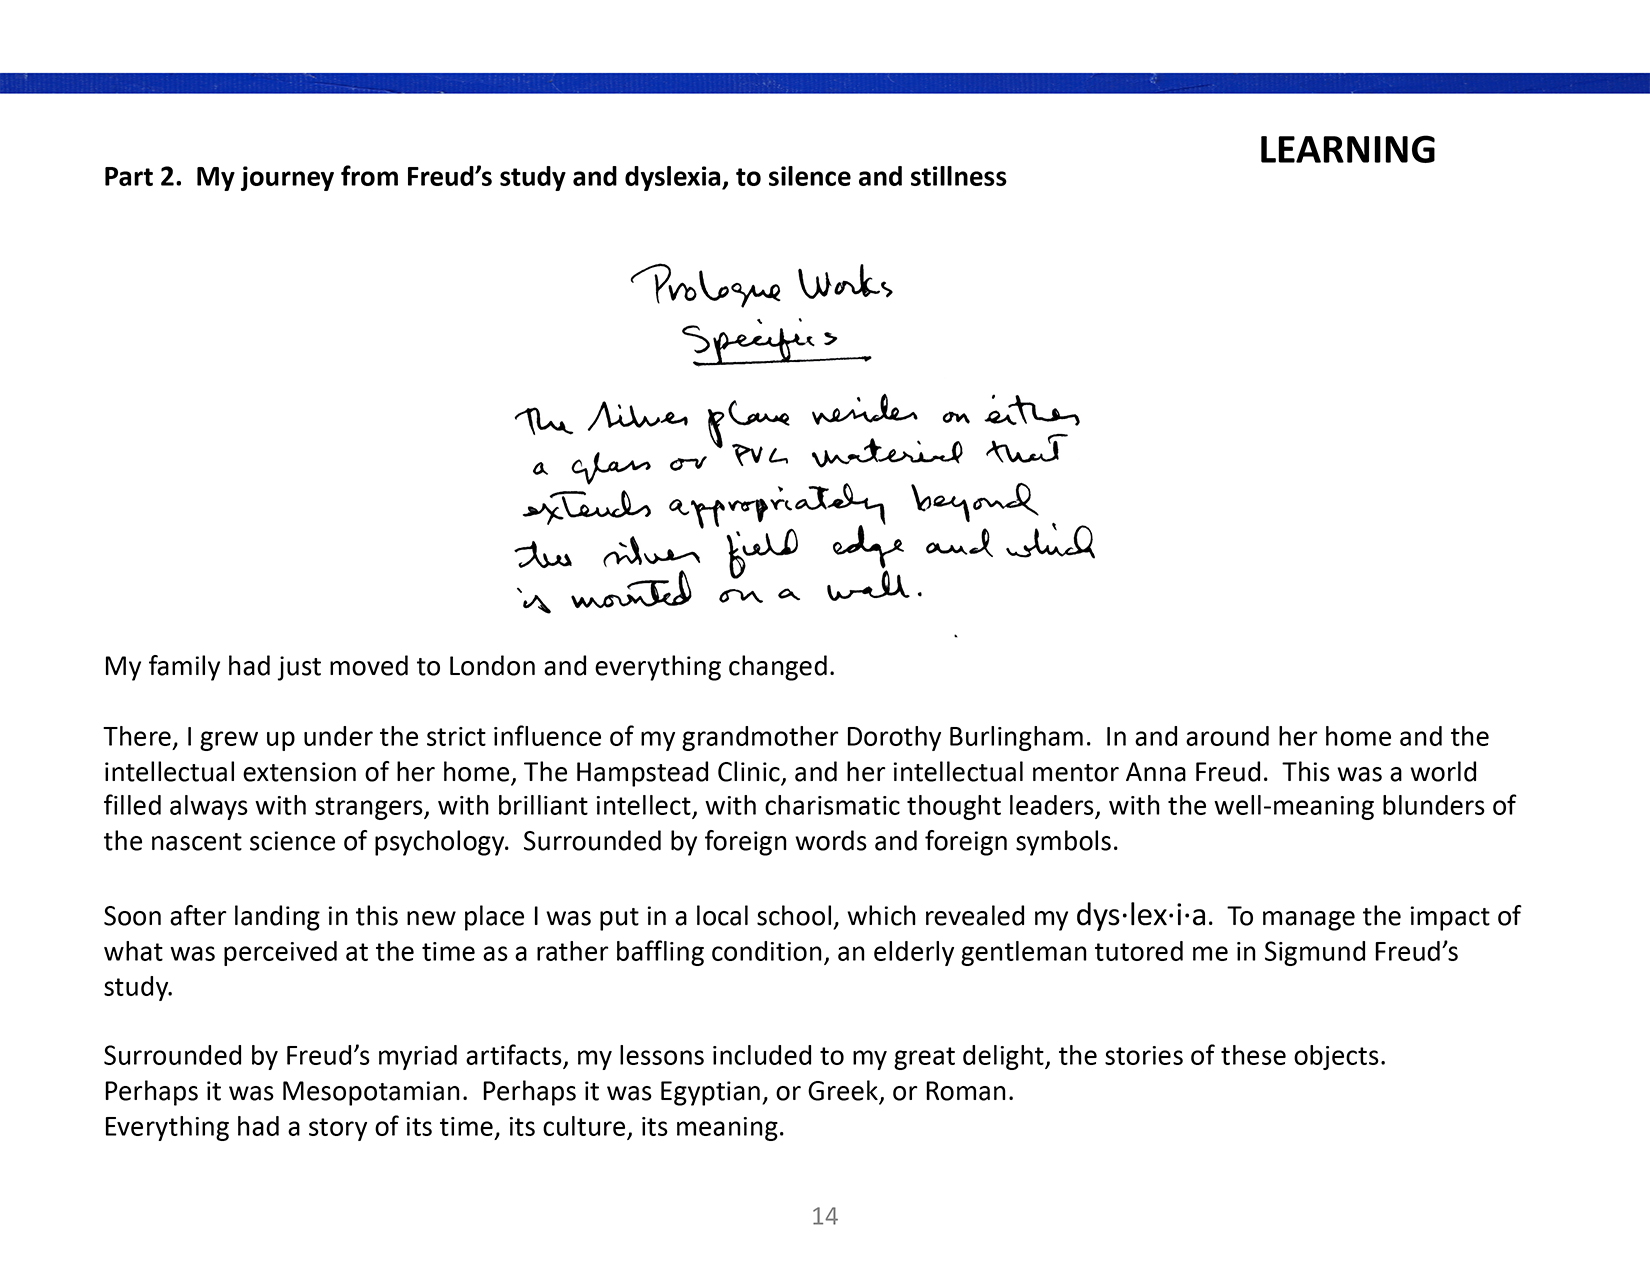 LEARNING
Part 2.  My journey from Freud’s study and dyslexia, to silence and stillness
Prologue Works
Specifics
The silver plane resides on either
a glass or PVC material that
extends appropriately beyond
the silver field edge and which
is mounted on a wall.
My family had just moved to London and everything changed.
There, I grew up under the strict influence of my grandmother Dorothy Burlingham.  In and around her home and the
intellectual extension of her home, The Hampstead Clinic, and her intellectual mentor Anna Freud.  This was a world
filled always with strangers, with brilliant intellect, with charismatic thought leaders, with the well-meaning blunders of
the nascent science of psychology.  Surrounded by foreign words and foreign symbols.
Soon after landing in this new place I was put in a local school, which revealed my dys·lex·i·a.  To manage the impact of
what was perceived at the time as a rather baffling condition, an elderly gentleman tutored me in Sigmund Freud’s
study.
Surrounded by Freud’s myriad artifacts, my lessons included to my great delight, the stories of these objects.
Perhaps it was Mesopotamian.  Perhaps it was Egyptian, or Greek, or Roman.
Everything had a story of its time, its culture, its meaning.
14